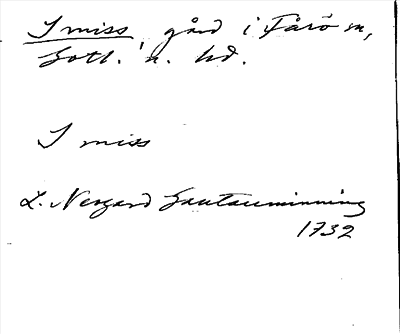 I miss, gård i Fårö sn,
Gotl. n. hd.
I miss
L. Nergard Gautauminning
1732